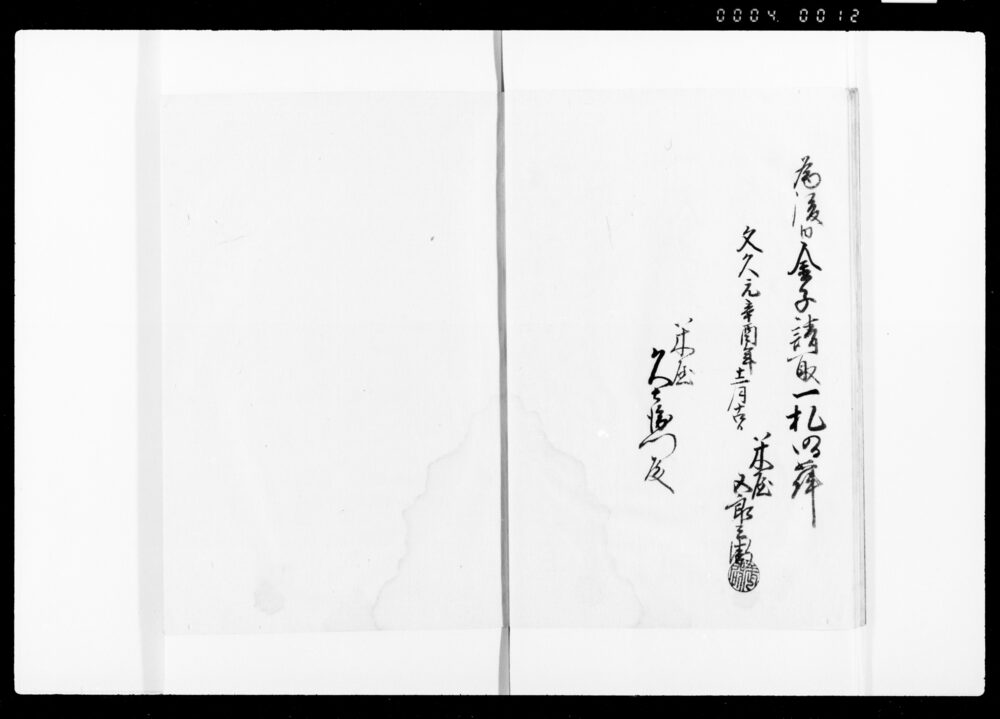 0004. 0012
為後日金子請取一札如件
文久元辛酉年十二月吉日
米屋
又郎三
米屋
久左衛門殿